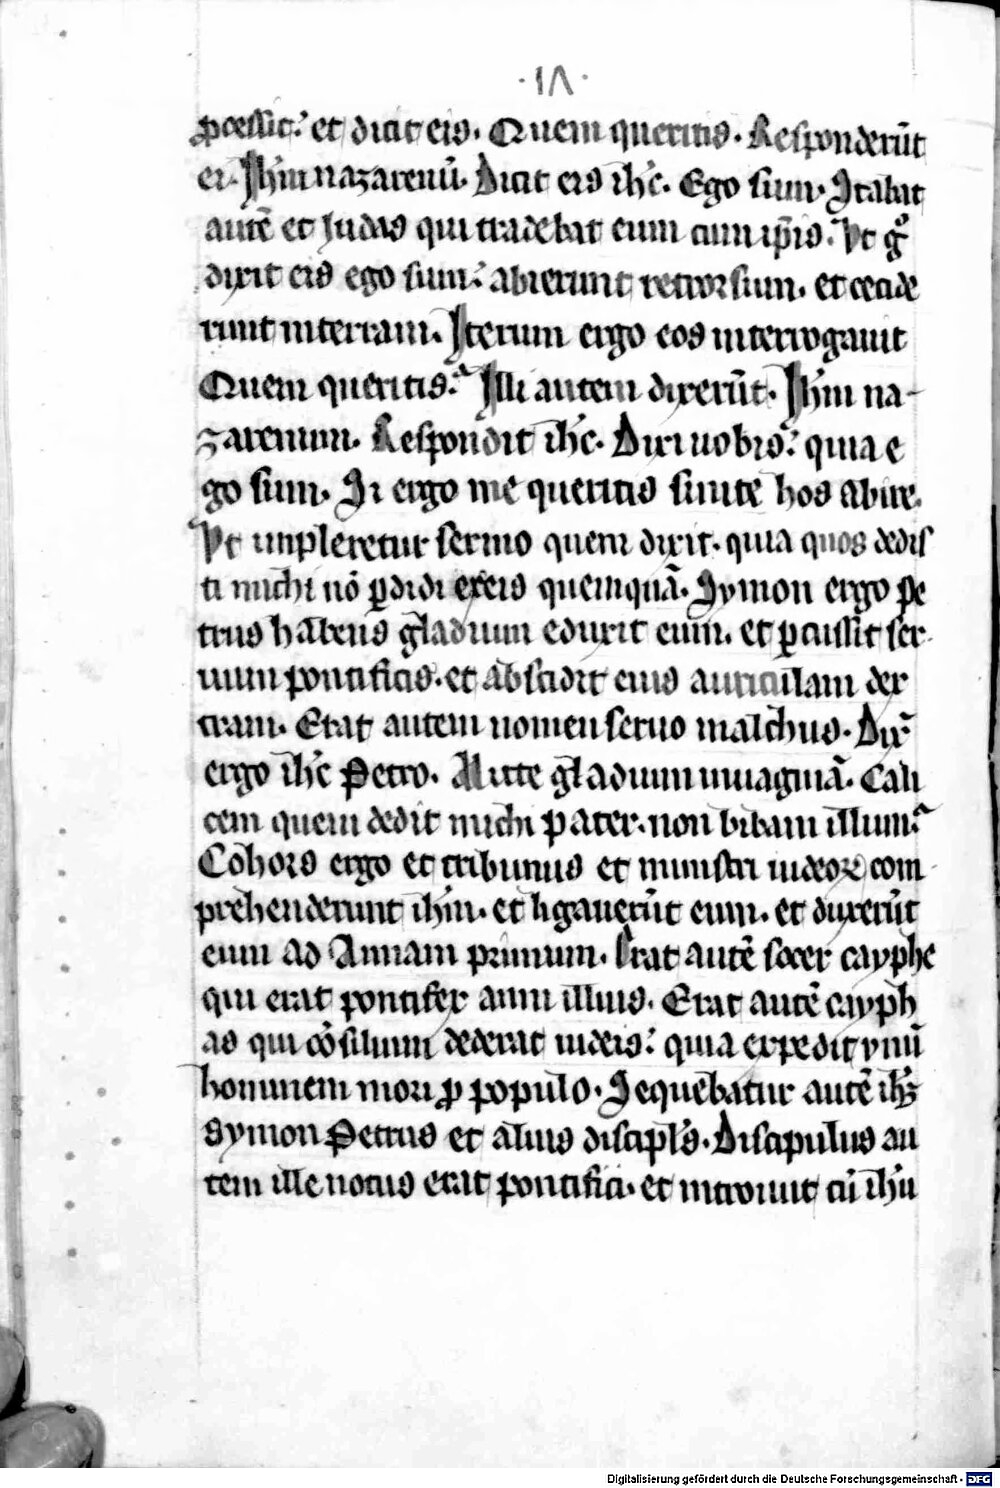 ·ıʌ·
ꝓcessit. et dicit eis. Quem queritis. Responderūt
ei. Ihm nazarenū. Dicit eis ihc. Ego sum. Stabat
autē et Iudas qui tradebat eum cum ip̄is. Vt gͦ
dixit eis ego sum. abierunt retrorsum. et cecide
runt interram. Iterum ergo eos interrogauit
Quem queritis. Illi autem dixerūt. Ihm na-
zarenum. Respondit ihc. Dixi uobis. quia e
go sum. Si ergo me queritis sinite hos abire.
Vt impleretur sermo quem dixit. quia quos dedis
ti michi nō ꝑdidi exeis quemquā. Symon ergo pe
trus habens gladium eduxit eum. et ꝑcussit ser
uum pontificis. et abscidit eius auriculam dex
tram. Erat autem nomen seruo malchus. Dix̄
ergo ihc Petro. Mitte gladium inuaginā. Cali
cem quem dedit michi pater. non bibam illum.
Cohors ergo et tribunus et ministri iudeoꝝ com
prehenderunt ihm. et ligauerūt eum. et duxerūt
eum ad Annam primum. Erat autē socer cayphe
qui erat pontifex anni illius. Erat autē cayph
as qui cōsilium dederat iudeis. quia expedit vnū
hominem mori ꝓ populo. Sequebatur autē ihm
Symon Petrus et alius discipl's. Discipulus au
tem ille notus erat pontifici. et introiuit cū ihu
Digitalisierung gefördert durch die Deutsche Forschungsgemeinschaft - DFG